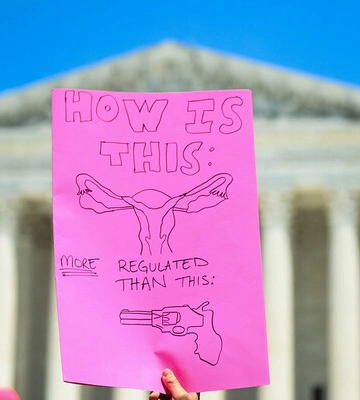 HOW IS
THIS:
MORE REGULATED
THAN THIS: